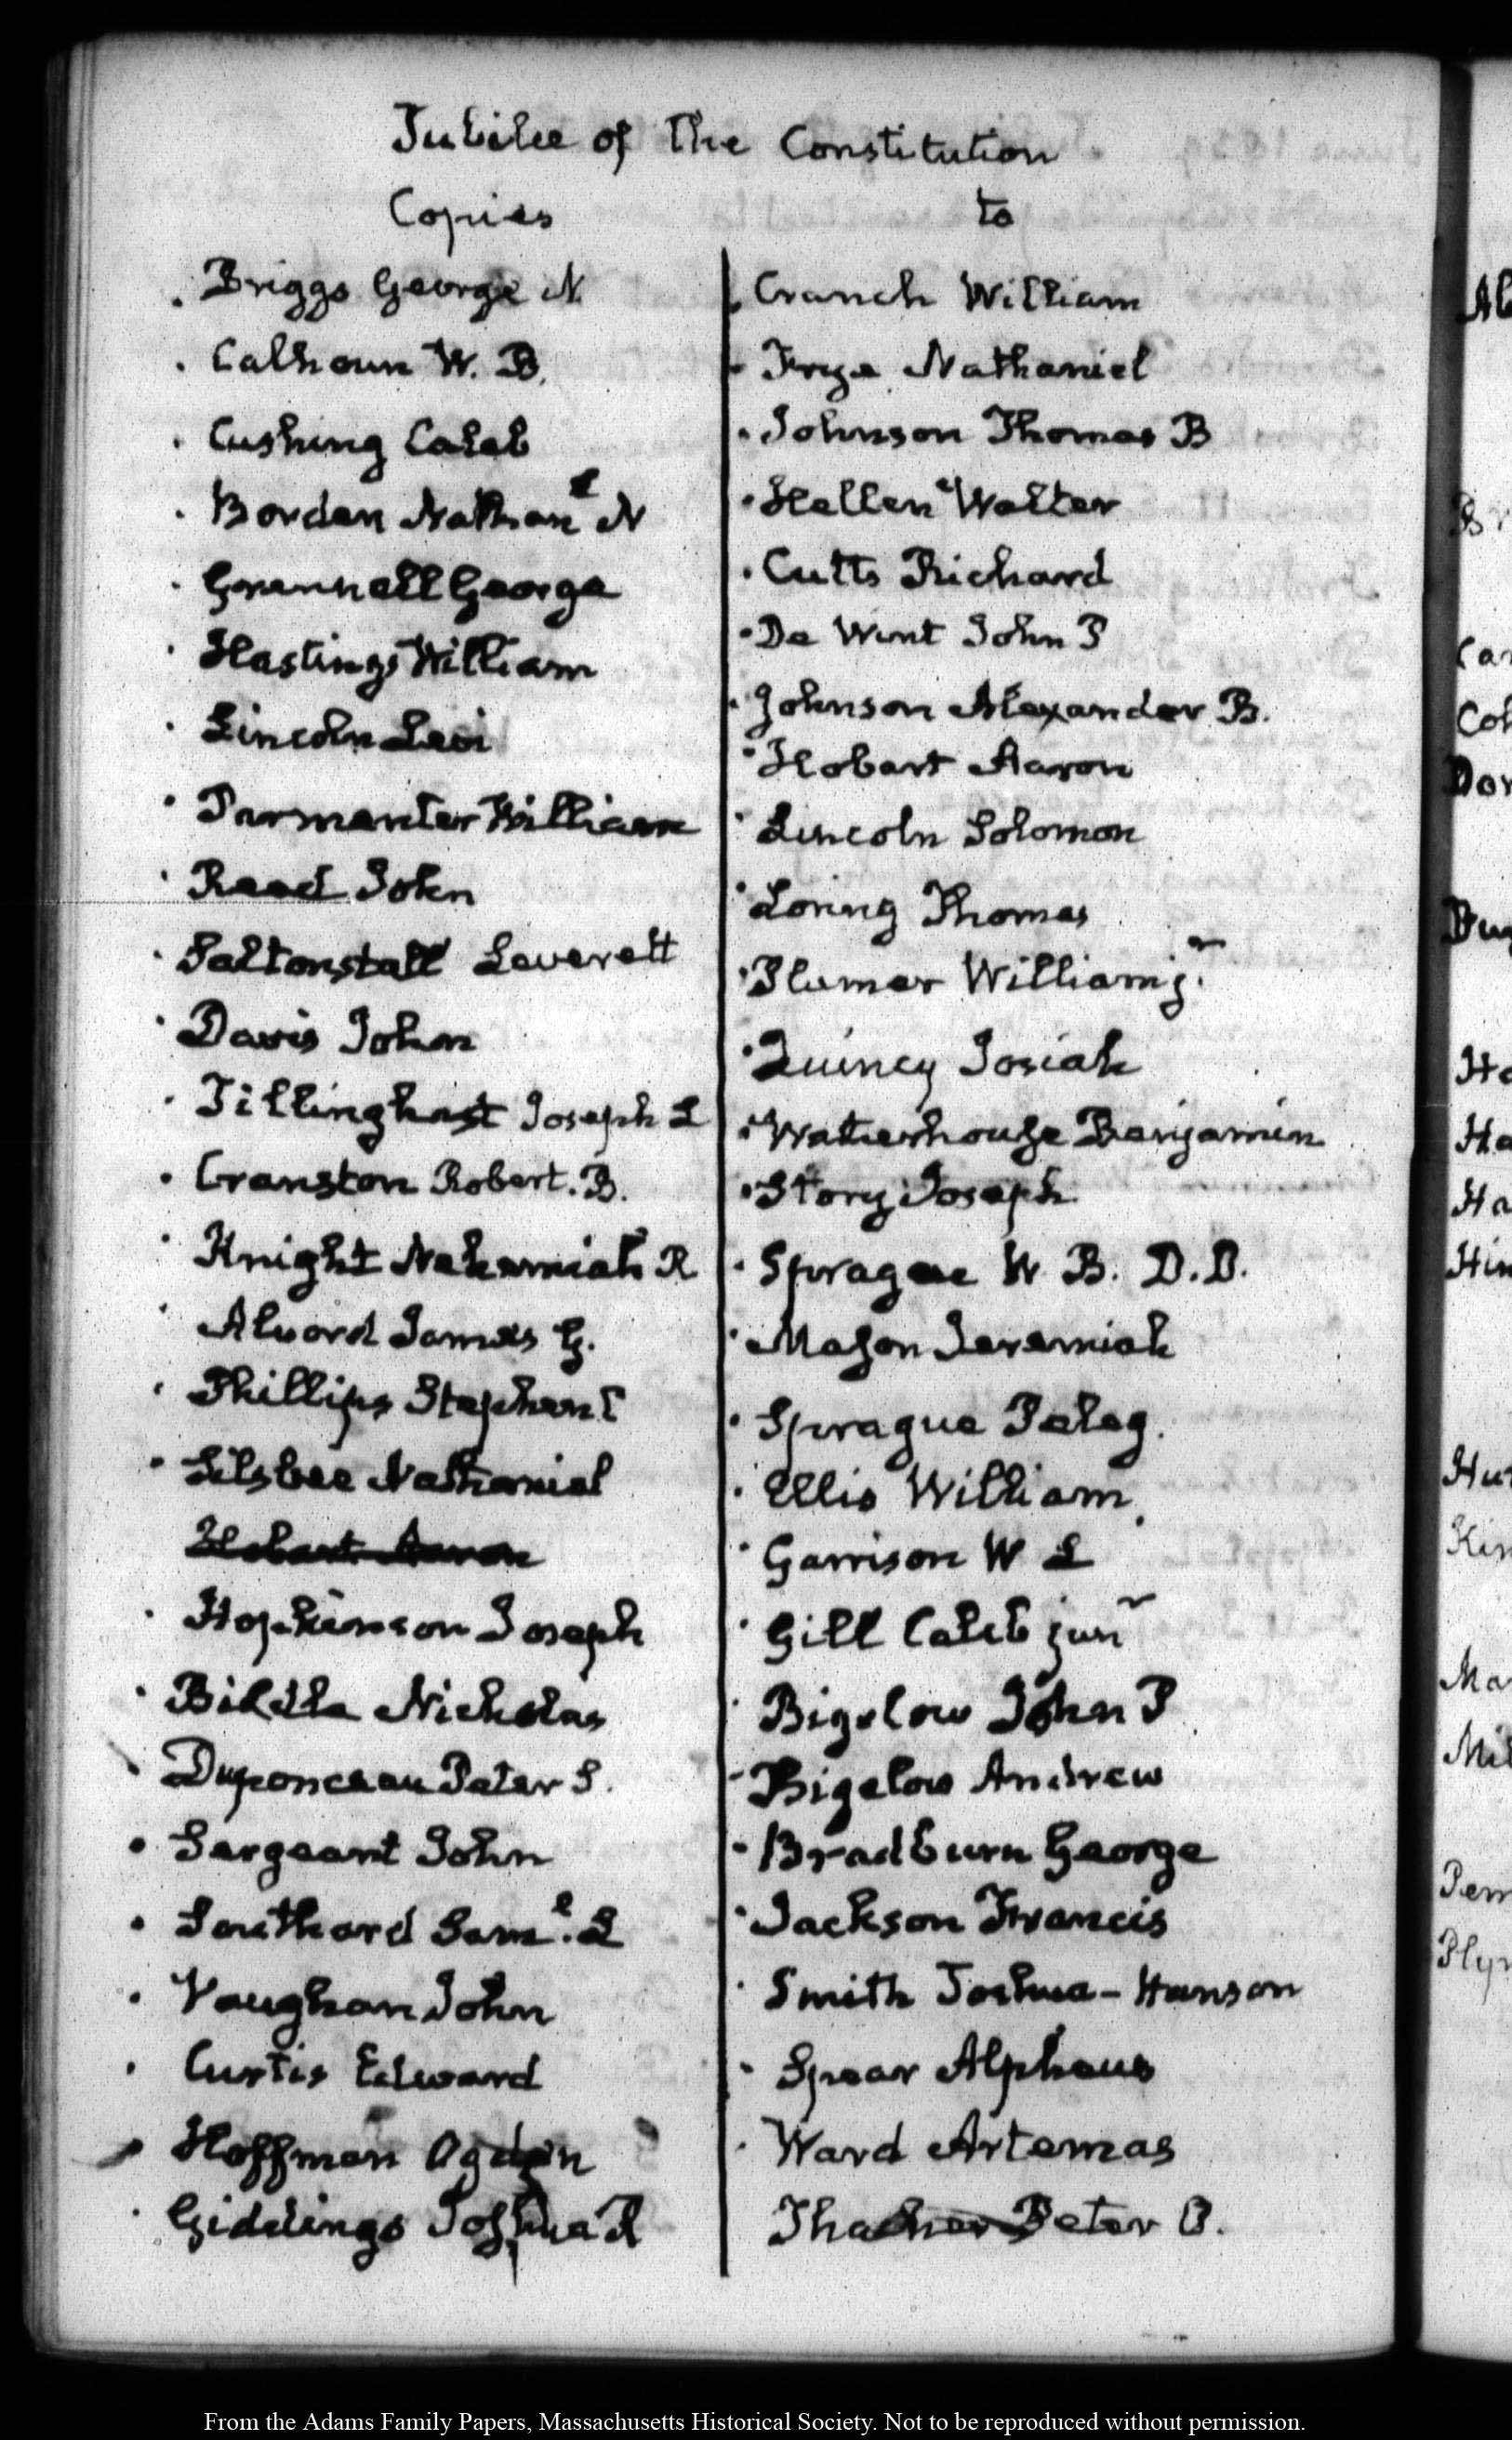 Jubilee of the Constitution
Copies to
Briggs George N.
Calhoun W. B.
Cushing Caleb
Borden Nathan^l N
Grennell George
Hastings William
Lincoln Levi
Parmenter William
Reed John
Saltonstall Leverett
Davis John
Tillinghast Joseph L
Cranston Robert. B.
Knight Nehemiah R
Alvord James G.
Phillips Stephen C
Silsbee Nathaniel
Hobart Aaron
Hopkinson Joseph
Biddle Nicholas
Duponceau Peter S.
Sergeant John
Southard Sam^l. L
Vaughan John
Curtis Edward
Hoffman Ogden
Giddings Joshua R
Cranch William
Frye Nathaniel
Johnson Thomas B
Hellen Walter
Cutts Richard
De Wint John P
Johnson Alexander B.
Hobart Aaron
Lincoln Solomon
Loring Thomas
Plumer William j^r.
Quincy Josiah
Waterhouse Benjamin
Story Joseph
Sprague W. B. D.D.
Mason Jeremiah
Sprague Peleg.
Ellis William
Garrison W L
Gill Caleb jun^r
Bigelow John P
Bigelow Andrew
Bradburn George
Jackson Francis
Smith Joshua-Hanson
Spear Alpheus
Ward Artemas
Thacher Peter O.
From the Adams Family Papers, Massachusetts Historical Society. Not to be reproduced without permission.